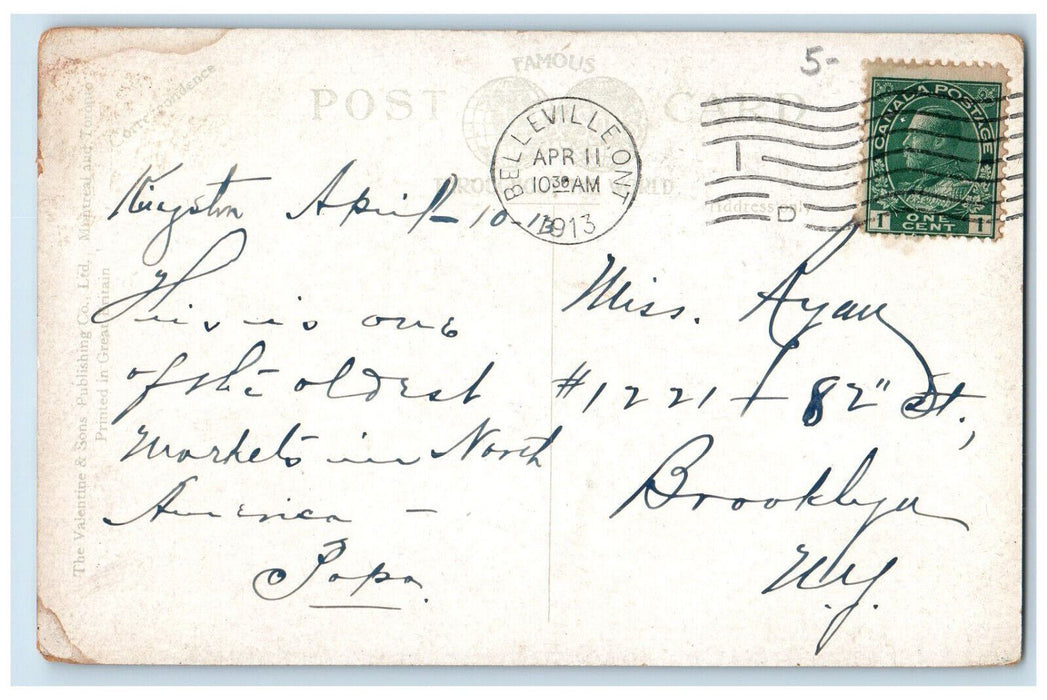 5-
FAMOUS
POST CARD
THROUGHOUT THE WORLD
Correspondence
Address only
BELLEVILLE ONT
APR 11
10 30 AM
1913
D
CANADA POSTAGE
1 ONE CENT 1
Kingston April-10-13
This is one
of the oldest
Markets in North
America -
Papa.
Miss. Ryan
#1221 - 82" St.,
Brooklyn
N.Y.
The Valentine & Sons Publishing Co., Ltd., Montreal and Toronto
Printed in Great Britain